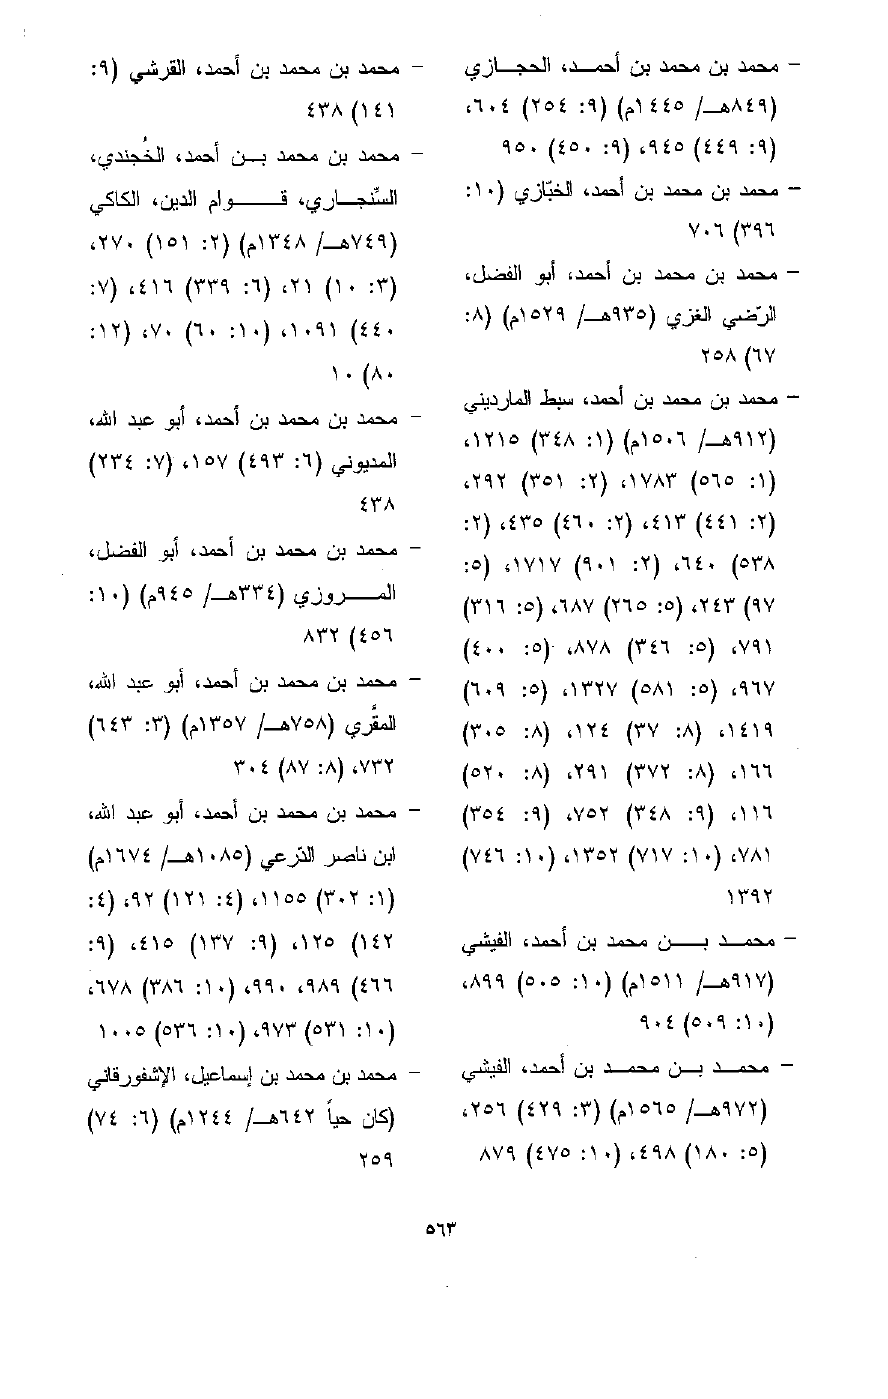 - محمد بن محمد بن أحمد، الحجازي
(٨٤٩هـ/ ١٤٤٥م) (٩: ٢٥٤) ٦٠٤،
(٩: ٤٤٩) ٩٤٥، (٩: ٤٥٠) ٩٥٠
- محمد بن محمد بن أحمد، الخبّازي (١٠:
٣٩٦) ٧٠٦
- محمد بن محمد بن أحمد، أبو الفضل،
الرّضي الغزي (٩٣٥هـ/ ١٥٢٩م) (٨:
٦٧) ٢٥٨
- محمد بن محمد بن أحمد، سبط المارديني
(٩١٢هـ/ ١٥٠٦م) (١: ٣٤٨) ١٢١٥،
(١: ٥٦٥) ١٧٨٣، (٢: ٣٥١) ٢٩٢،
(٢: ٤٤١) ٤١٣، (٢: ٤٦٠) ٤٣٥، (٢:
٥٣٨) ٦٤٠، (٢: ٩٠١) ١٧١٧، (٥:
٩٧) ٢٤٣، (٥: ٢٦٥) ٦٨٧، (٥: ٣١٦)
٧٩١، (٥: ٣٤٦) ٨٧٨، (٥: ٤٠٠)
٩٦٧، (٥: ٥٨١) ١٣٢٧، (٥: ٦٠٩)
١٤١٩، (٨: ٣٧) ١٢٤، (٨: ٣٠٥)
١٦٦، (٨: ٣٧٢) ٢٩١، (٨: ٥٢٠)
١١٦، (٩: ٣٤٨) ٧٥٢، (٩: ٣٥٤)
٧٨١، (١٠: ٧١٧) ١٣٥٢، (١٠: ٧٤٦)
١٣٩٢
- محمد بن محمد بن أحمد، الفيشي
(٩١٧هـ/ ١٥١١م) (١٠: ٥٠٥) ٨٩٩،
(١٠: ٥٠٩) ٩٠٤
- محمد بن محمد بن أحمد، الفيشي
(٩٧٢هـ/ ١٥٦٥م) (٣: ٤٢٩) ٢٥٦،
(٥: ١٨٠) ٤٩٨، (١٠: ٤٧٥) ٨٧٩
- محمد بن محمد بن أحمد، القرشي (٩:
١٤١) ٤٣٨
- محمد بن محمد بن أحمد، الخُجندي،
السِّنجاري، قوام الدين، الكاكي
(٧٤٩هـ/ ١٣٤٨م) (٢: ١٥١) ٢٧٠،
(٣: ١٠) ٢١، (٦: ٣٣٩) ٤١٦، (٧:
٤٤٠) ١٠٩١، (١٠: ٦٠) ٧٠، (١٢:
٨٠) ١٠
- محمد بن محمد بن أحمد، أبو عبد الله،
المديوني (٦: ٤٩٣) ١٥٧، (٧: ٢٣٤)
٤٣٨
- محمد بن محمد بن أحمد، أبو الفضل،
المروزي (٣٣٤هـ/ ٩٤٥م) (١٠:
٤٥٦) ٨٣٢
- محمد بن محمد بن أحمد، أبو عبد الله،
المقَّري (٧٥٨هـ/ ١٣٥٧م) (٣: ٦٤٣)
٧٣٢، (٨: ٨٧) ٣٠٤
- محمد بن محمد بن أحمد، أبو عبد الله،
ابن ناصر الدّرعي (١٠٨٥هـ/ ١٦٧٤م)
(١: ٣٠٢) ١١٥٥، (٤: ١٢١) ٩٢، (٤:
١٤٢) ١٢٥، (٩: ١٣٧) ٤١٥، (٩:
٤٦٦) ٩٨٩، ٩٩٠، (١٠: ٣٨٦) ٦٧٨،
(١٠: ٥٣١) ٩٧٣، (١٠: ٥٣٦) ١٠٠٥
- محمد بن محمد بن إسماعيل، الإشفورقاني
(كان حياً ٦٤٢هـ/ ١٢٤٤م) (٦: ٧٤)
٢٥٩
٥٦٣